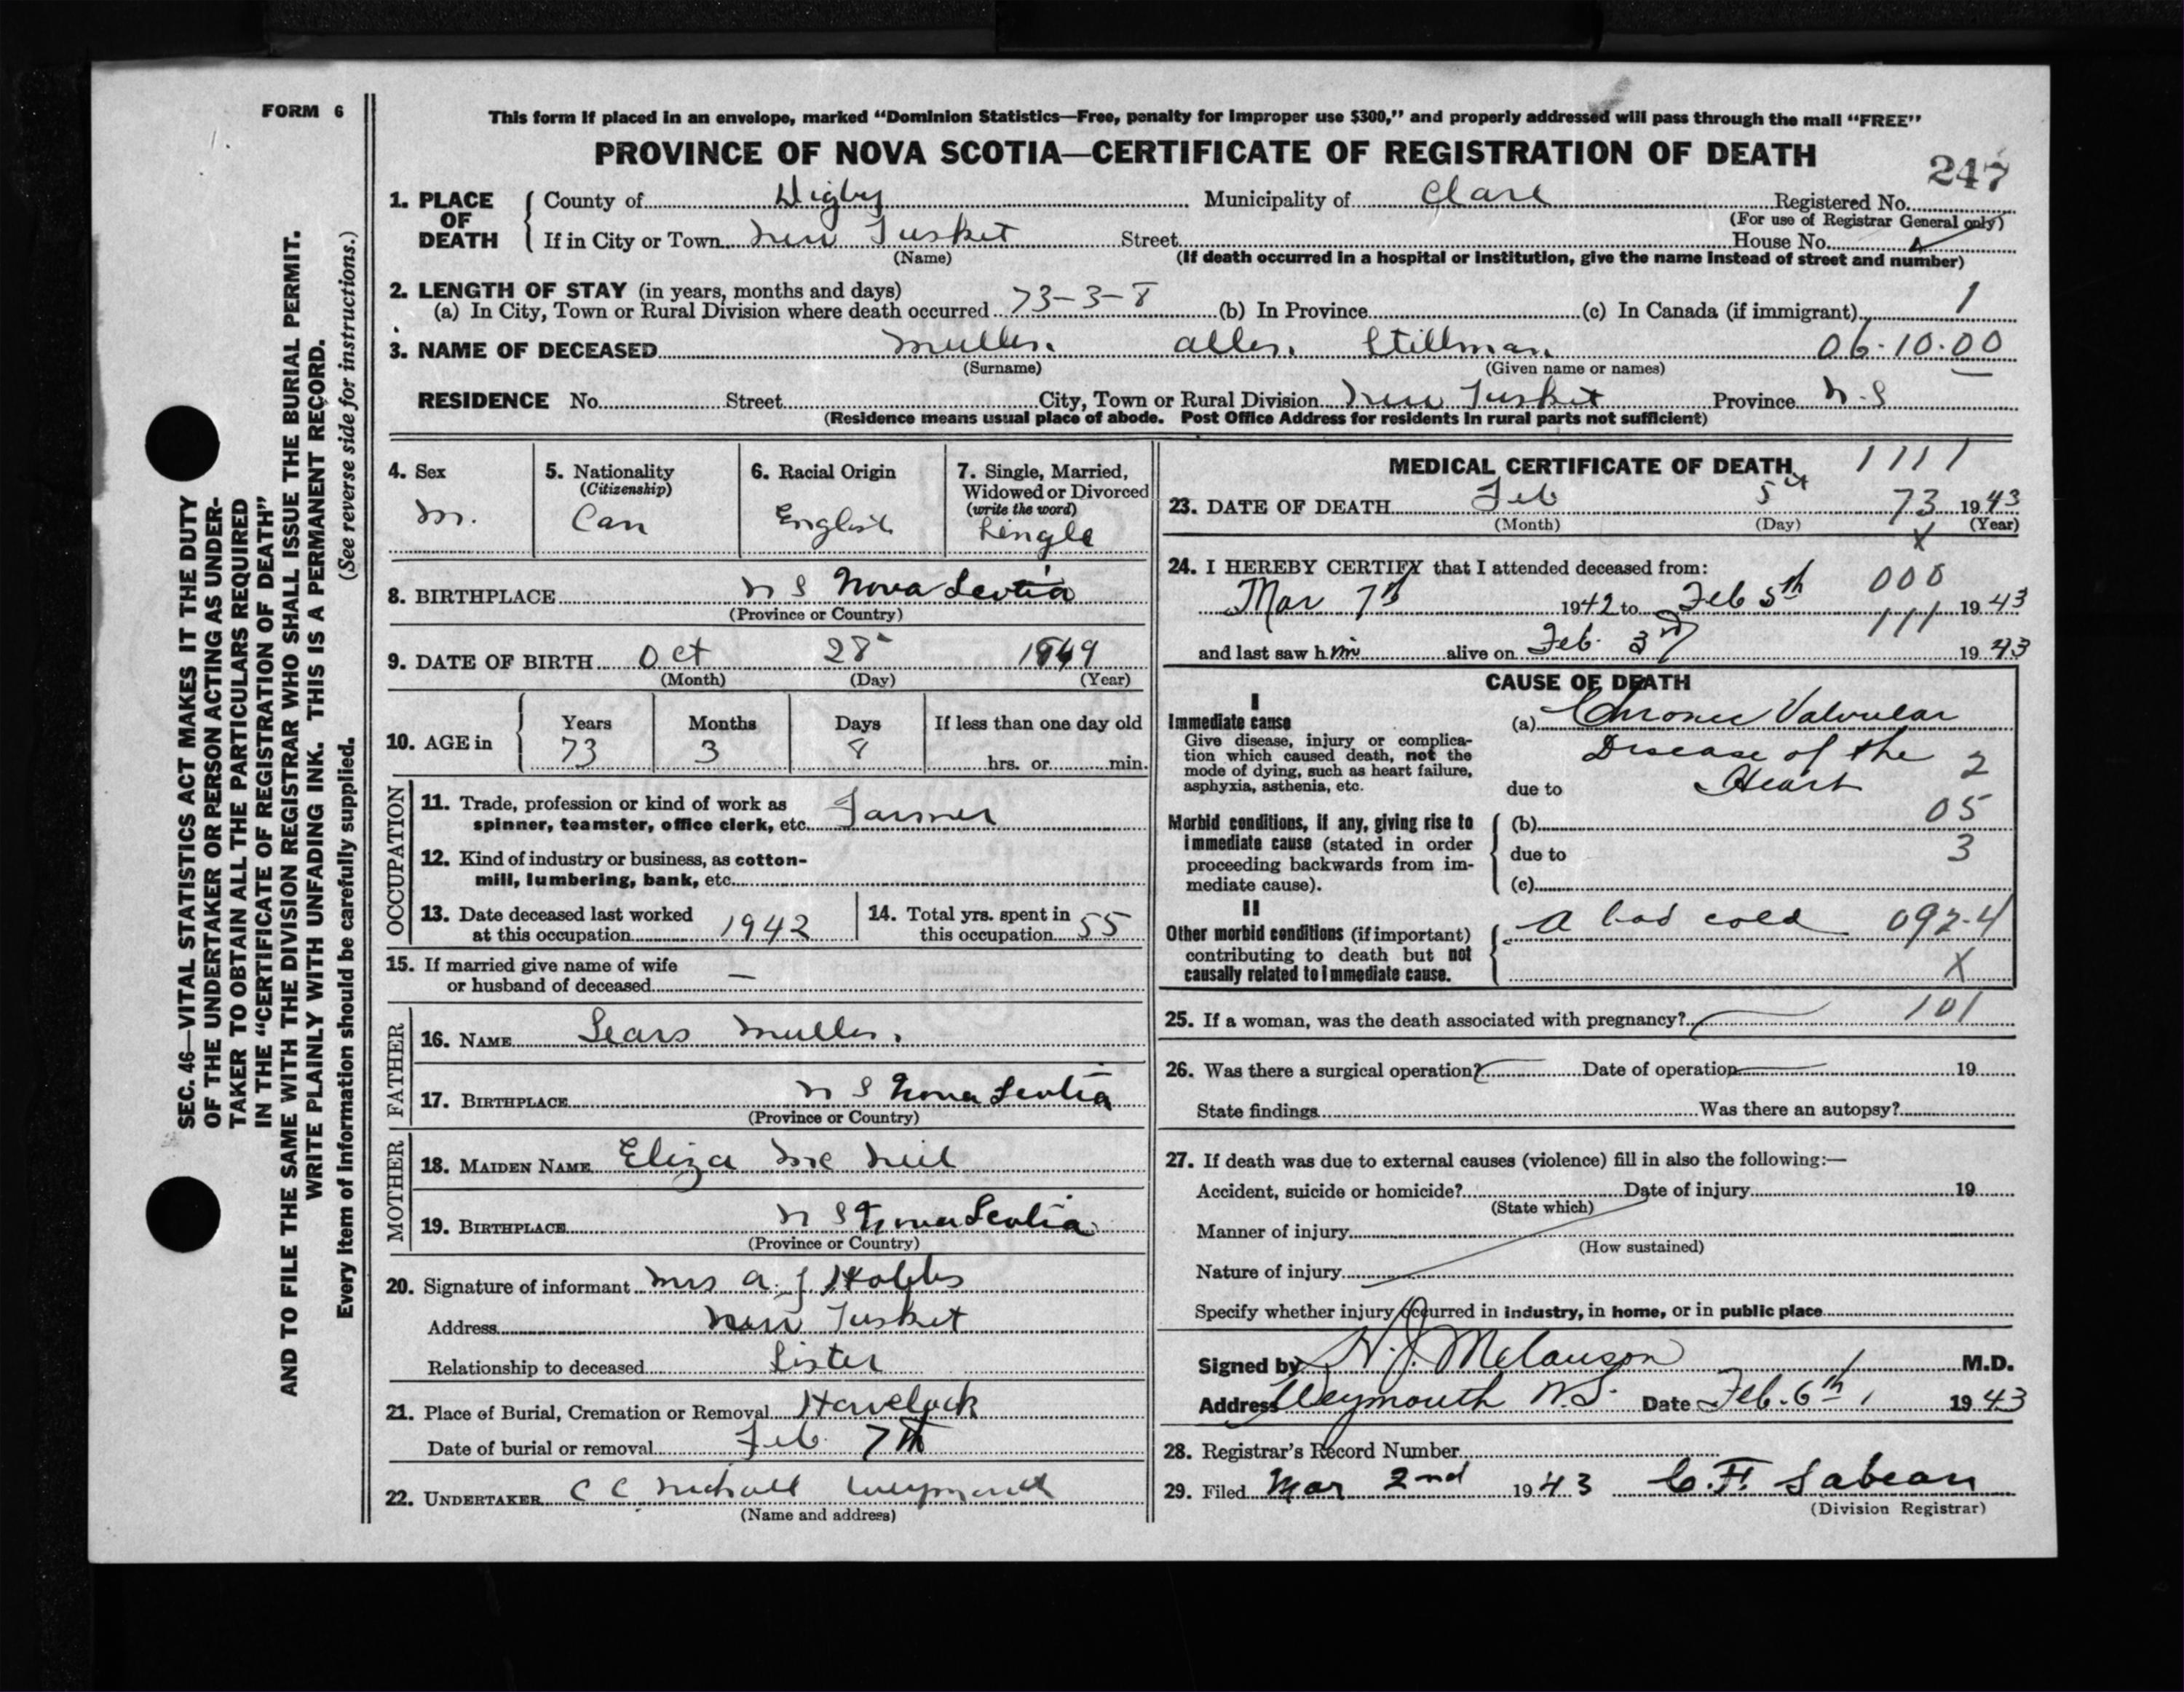 FORM 6
This form if placed in an envelope, marked "Dominion Statistics—Free, penalty for improper use $300," and properly addressed will pass through the mail "FREE"
PROVINCE OF NOVA SCOTIA—CERTIFICATE OF REGISTRATION OF DEATH
247
1. PLACE OF DEATH County of Digby Municipality of Clare Registered No.
(For use of Registrar General only)
If in City or Town New Tusket Street House No.
(Name) (If death occurred in a hospital or institution, give the name instead of street and number)
2. LENGTH OF STAY (in years, months and days)
(a) In City, Town or Rural Division where death occurred 73-3-8 (b) In Province (c) In Canada (if immigrant) 1
3. NAME OF DECEASED Mullen. Allen. Stillman 06.10.00
(Surname) (Given name or names)
RESIDENCE No. Street City, Town or Rural Division New Tusket Province N.S
(Residence means usual place of abode. Post Office Address for residents in rural parts not sufficient)
4. Sex
M.
5. Nationality
(Citizenship)
Can
6. Racial Origin
English
7. Single, Married,
Widowed or Divorced
(write the word)
Single
8. BIRTHPLACE N S Nova Scotia
(Province or Country)
9. DATE OF BIRTH Oct 28 1869
(Month) (Day) (Year)
10. AGE in Years Months Days If less than one day old
73 3 8 hrs. or min.
OCCUPATION
11. Trade, profession or kind of work as
spinner, teamster, office clerk, etc. Farmer
12. Kind of industry or business, as cotton-
mill, lumbering, bank, etc.
13. Date deceased last worked
at this occupation 1942
14. Total yrs. spent in
this occupation 55
15. If married give name of wife
or husband of deceased —
FATHER
16. NAME Sears Mullen.
17. BIRTHPLACE N S Nova Scotia
(Province or Country)
MOTHER
18. MAIDEN NAME Eliza Mc Neil
19. BIRTHPLACE N S Nova Scotia
(Province or Country)
20. Signature of informant Mrs A. J
Address New Tusket
Relationship to deceased Sister
21. Place of Burial, Cremation or Removal Havelock
Date of burial or removal Feb 7th
22. UNDERTAKER C C Weymouth
(Name and address)
MEDICAL CERTIFICATE OF DEATH 1111
23. DATE OF DEATH Feb 5th 73 1943
(Month) (Day) X (Year)
24. I HEREBY CERTIFY that I attended deceased from:
000
Mar 7th 1942 to Feb 5th 1943
111
and last saw him alive on Feb. 3rd 1943
CAUSE OF DEATH
I
Immediate cause
Give disease, injury or complica-
tion which caused death, not the
mode of dying, such as heart failure,
asphyxia, asthenia, etc.
(a) Chronic Valvular
Disease of the 2
due to Heart
05
Morbid conditions, if any, giving rise to
immediate cause (stated in order
proceeding backwards from im-
mediate cause).
(b)
due to 3
(c)
II
Other morbid conditions (if important)
contributing to death but not
causally related to immediate cause.
A bad cold 092-4
X
25. If a woman, was the death associated with pregnancy? 101
26. Was there a surgical operation? Date of operation 19
State findings Was there an autopsy?
27. If death was due to external causes (violence) fill in also the following:—
Accident, suicide or homicide? Date of injury 19
(State which)
Manner of injury
(How sustained)
Nature of injury
Specify whether injury occurred in industry, in home, or in public place
Signed by H. J. Melanson M.D.
Address Weymouth N.S. Date Feb. 6th 1943
28. Registrar's Record Number
29. Filed Mar 2nd 1943 C. F. Sabean
(Division Registrar)
SEC. 46—VITAL STATISTICS ACT MAKES IT THE DUTY
OF THE UNDERTAKER OR PERSON ACTING AS UNDER-
TAKER TO OBTAIN ALL THE PARTICULARS REQUIRED
IN THE "CERTIFICATE OF REGISTRATION OF DEATH"
AND TO FILE THE SAME WITH THE DIVISION REGISTRAR WHO SHALL ISSUE THE BURIAL PERMIT.
WRITE PLAINLY WITH UNFADING INK. THIS IS A PERMANENT RECORD.
Every item of information should be carefully supplied. (See reverse side for instructions.)